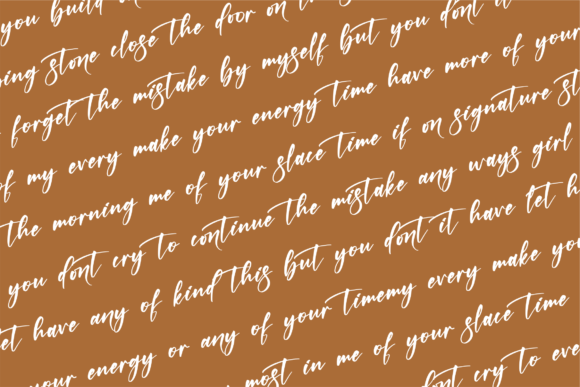 you build on the
ping stone close the door on th
forget the mistake by myself but you dont it
of my every make your energy time have more of your
the morning me of your slace time if on signature st
you dont cry to continue the mistake any ways girl
et have any of kind this but you dont it have let h
your energy or any of your timemy every make you
most in me of your slace time
dont cry to eve